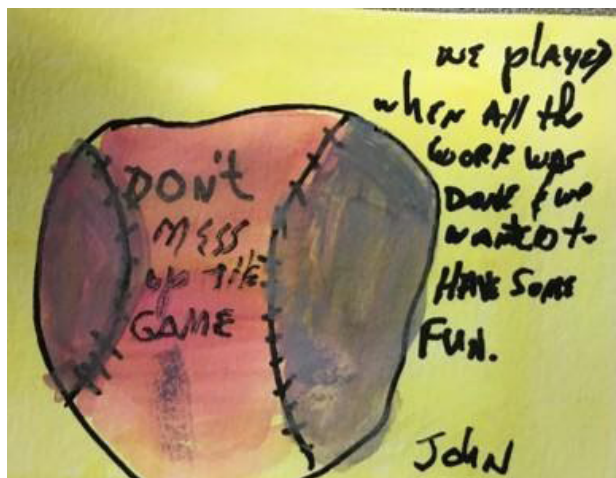 DON't
MESS
up THE
GAME
WE plAYED
whEN All the
WORK WAS
DONE & WE
WANTED to
HAVE SOME
FUN.
JohN